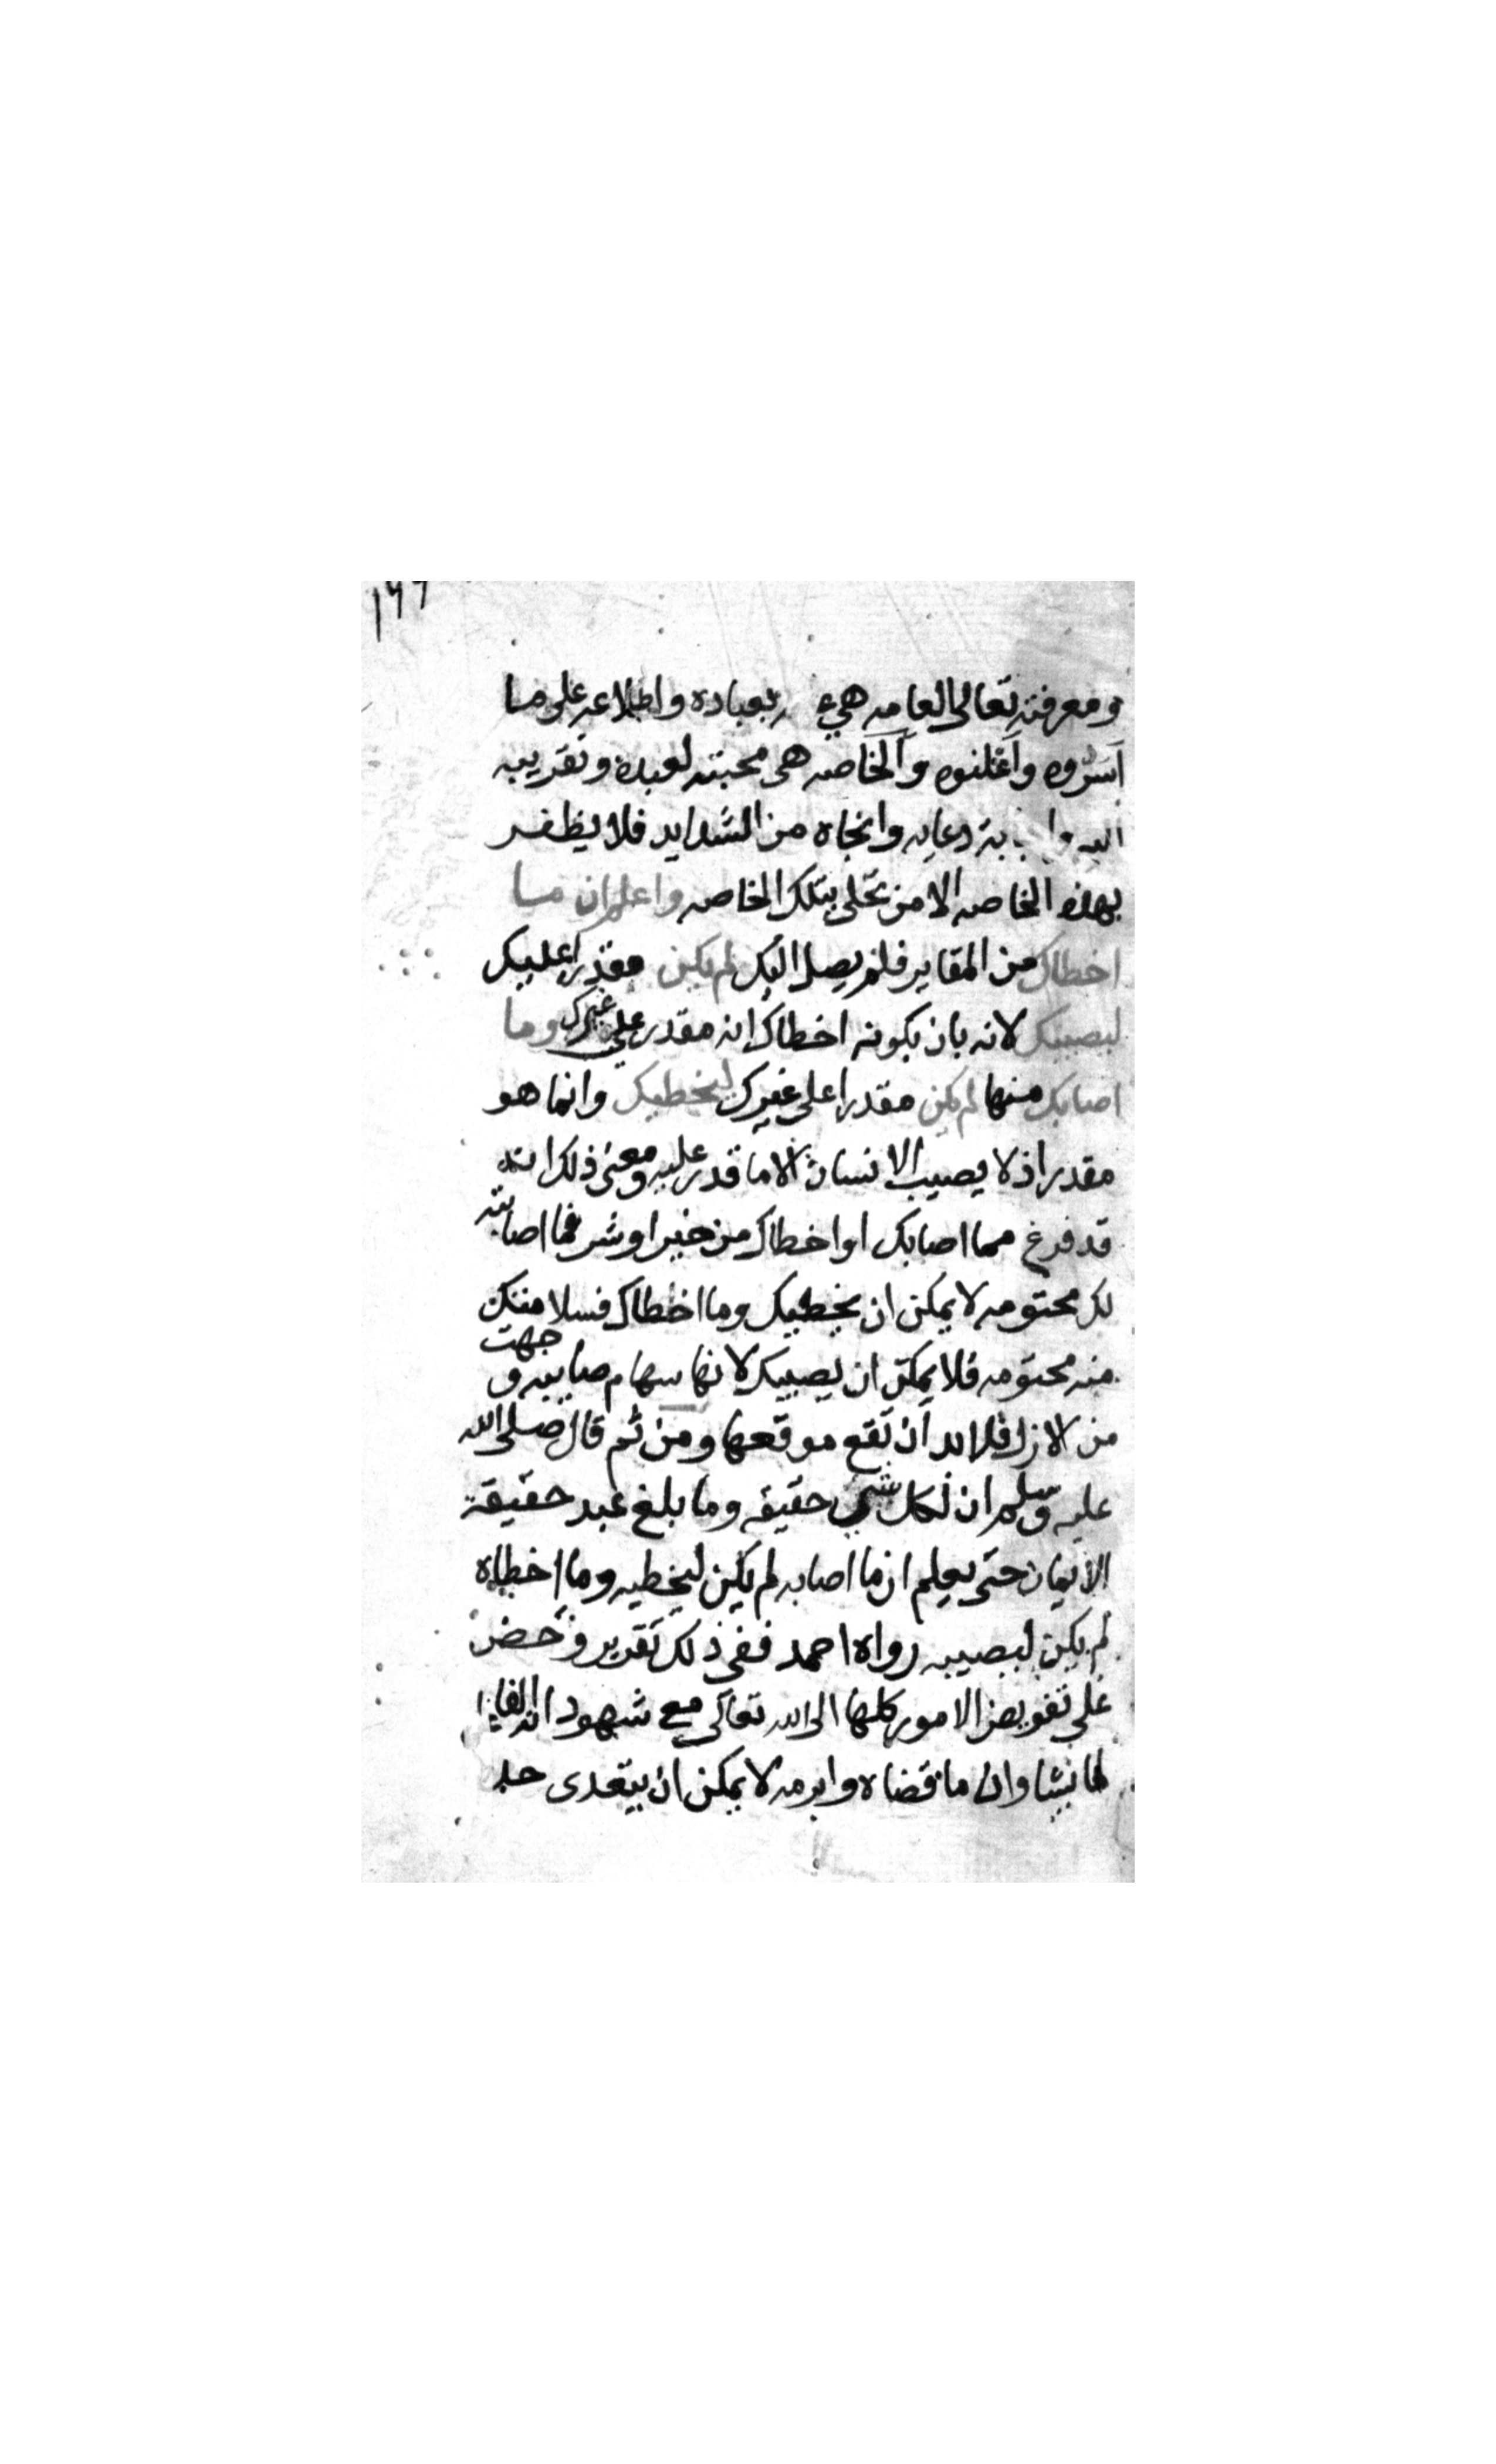 ١٧٦
ومعرفته تعالى العامه هي بعباده واطلاعه على ما
اسروه واعلنوه والخاصه هى محبته لعبده وتقريبه
اليه دعايه وانجاه من الشدايد فلا يظفر
بهذه الخاصه الا من تحلى بتلك الخاصه واعلم ان ما
اخطاك من المقاير فلم يصل اليك لم يكن مقدرا عليك
ليصيبك لانه بان بكونه اخطاك انه مقدر على غيرك وما
اصابك منها لم يكن مقدرا على غيرك ليخطيك وانما هو
مقدر اذ لا يصيب الانسان الا ما قدر عليه ومعنى ذلك انه
قد فرغ مما اصابك او اخطاك من خير او شر فما اصابته
لك محتومه لا يمكن ان يخطيك وما اخطاك فسلامتك
منه محتومه فلا يمكن ان يصيبك لانها سهام صايبه وجهت
من الازل فلا بد ان تقع موقعها ومن ثم قال صلى الله
عليه وسلم ان لكل شي حقيقه وما بلغ عبد حقيقة
الايمان حتى يعلم ان ما اصابه لم يكن ليخطيه وما اخطاه
لم يكن ليصيبه رواه احمد ففى ذلك تقرير وحض
على تفويض الامور كلها الى الله تعالى مع شهود انه الفاعل
لما يشا وان ما قضاه وابرمه لا يمكن ان يتعدى حد